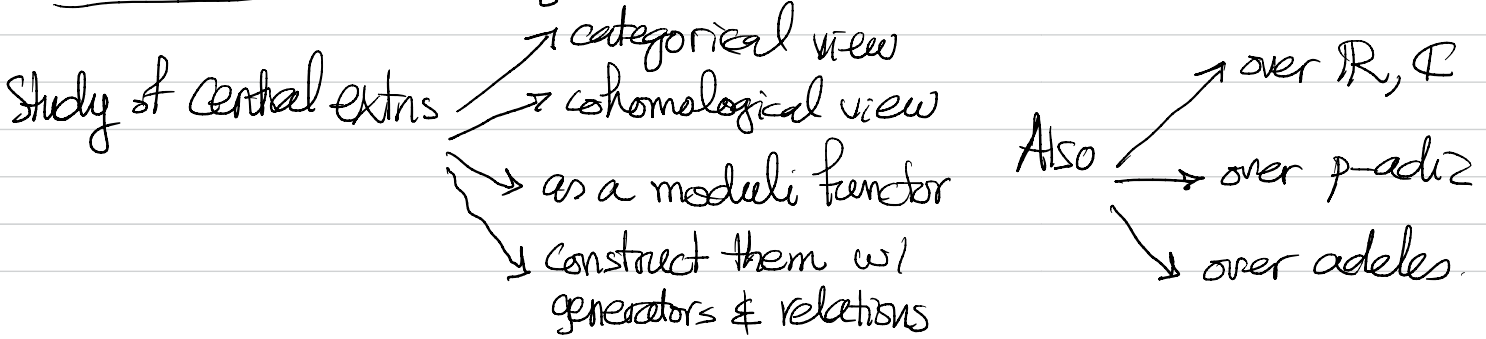 Study of Central extns
categorical view
cohomological view
as a moduli functor
construct them w/
generators & relations
Also
over ℝ, ℂ
over p-adic
over adeles.